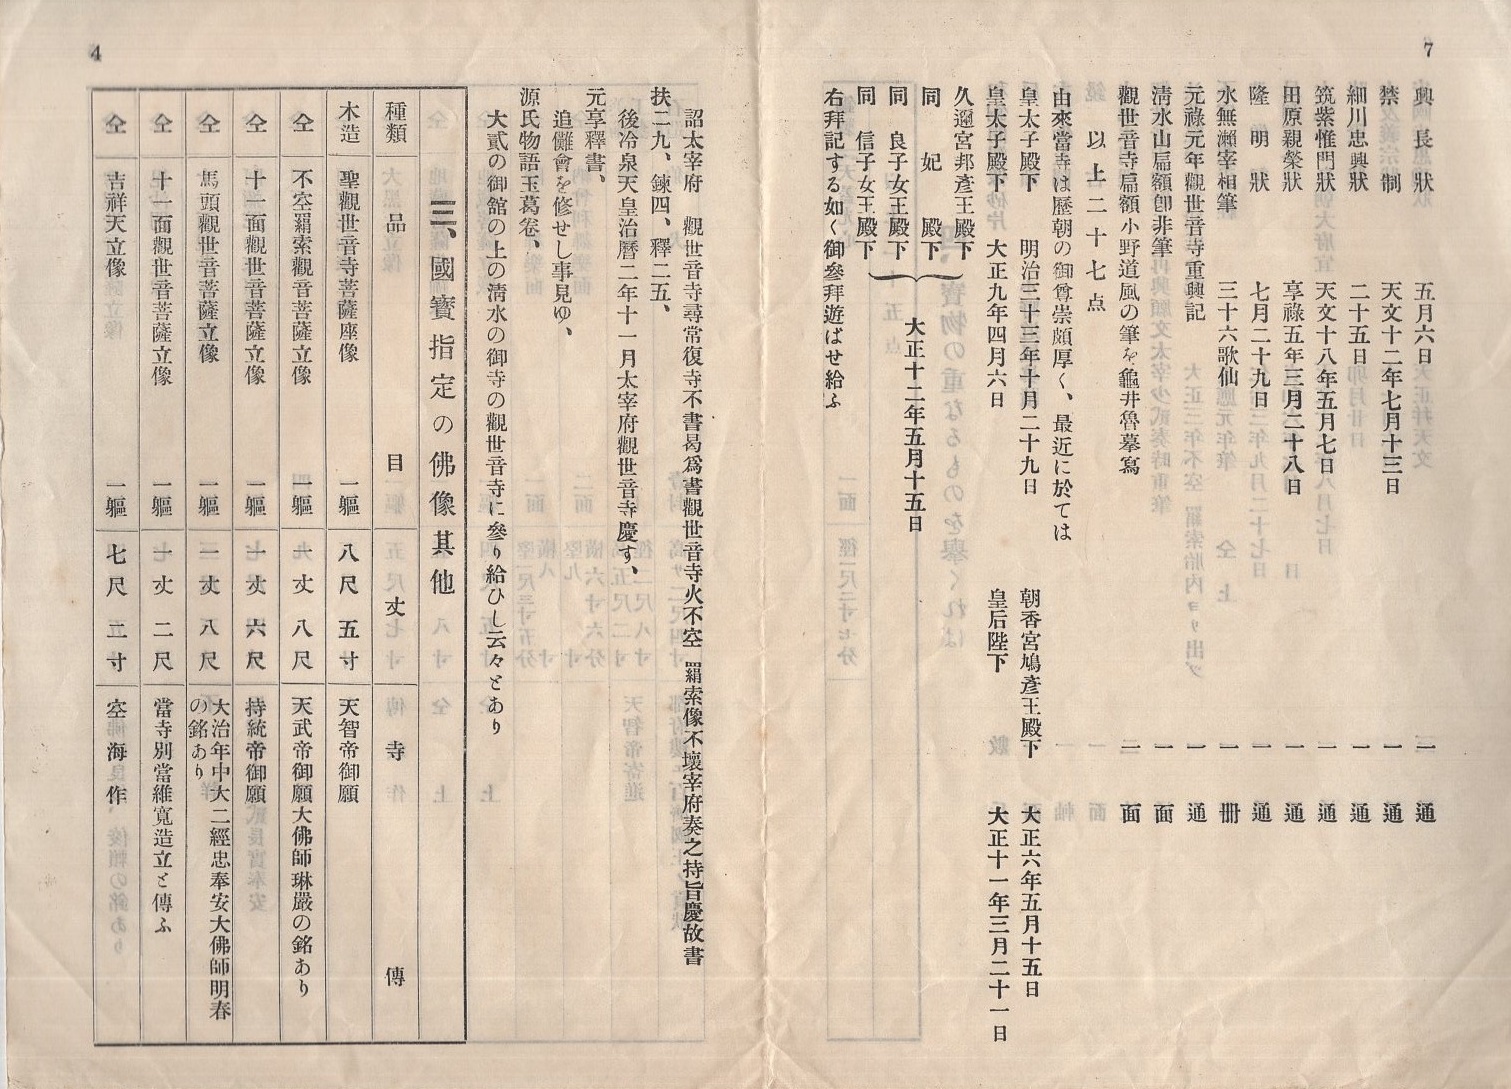 7
興長狀 五月六日 一通
禁制 天文十二年七月十三日 一通
細川忠興狀 二十五日 一通
筑紫惟門狀 天文十八年五月七日 一通
田原親榮狀 享祿五年三月二十八日 一通
隆明狀 七月二十九日 一通
水無瀨宰相筆 三十六歌仙 一冊
元祿元年觀世音寺重興記 一通
淸水山扁額卽非筆 一面
觀世音寺扁額小野道風の筆を龜井魯摹寫 一面
以上二十七点
由來當寺は歷朝の御尊崇頗厚く、最近に於ては
皇太子殿下 明治三十三年十月二十九日 朝香宮鳩彥王殿下 大正六年五月十五日
皇太子殿下 大正九年四月六日 皇后陛下 大正十一年三月二十一日
久邇宮邦彥王殿下
同妃殿下
同良子女王殿下
同信子女王殿下
大正十二年五月十五日
右拜記する如く御參拜遊ばせ給ふ
4
詔太宰府 觀世音寺尋常復寺不書曷爲書觀世音寺火不空羂索像不壞宰府奏之持旨慶故書
扶二九、鍊四、釋二五、
後冷泉天皇治曆二年十一月太宰府觀世音寺慶す、
元享釋書、
追儺會を修せし事見ゆ、
源氏物語玉葛卷、
大貳の御館の上の淸水の御寺の觀世音寺に參り給ひし云々とあり
三、國寶指定の佛像其他
種類 品目 丈 寺傳
木造 聖觀世音寺菩薩座像 一軀 八尺五寸 天智帝御願
仝 不空羂索觀音菩薩立像 一軀 一丈八尺 天武帝御願大佛師琳嚴の銘あり
仝 十一面觀世音菩薩立像 一軀 一丈六尺 持統帝御願
仝 馬頭觀世音菩薩立像 一軀 一丈八尺 大治年中大二經忠奉安大佛師明春の銘あり
仝 十一面觀世音菩薩立像 一軀 一丈二尺 當寺別當維寬造立と傳ふ
仝 吉祥天立像 一軀 七尺二寸 空海作